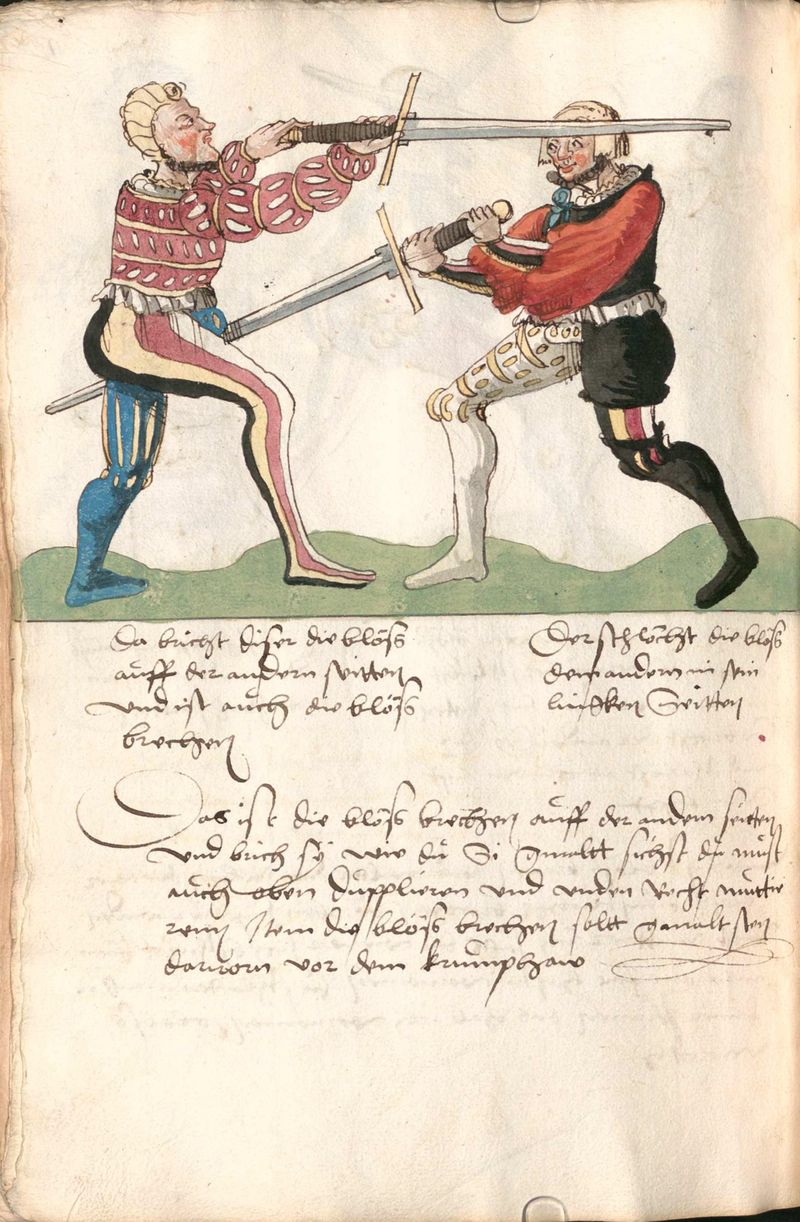 Da bricht diser die blöß
auff der andern seitten
und ist auch die blöß
brechen
Der schlöcht die blöß
dem andern in sein
lincken Seitten
Das ist die blöß brechen auff der andern seitten
und brich sy wie du Si gmalt sichst du must
auch oben dupplieren und unden recht muttie
renn Item die blöß brechen solt gmalt sten
darvorn vor dem krumphaw